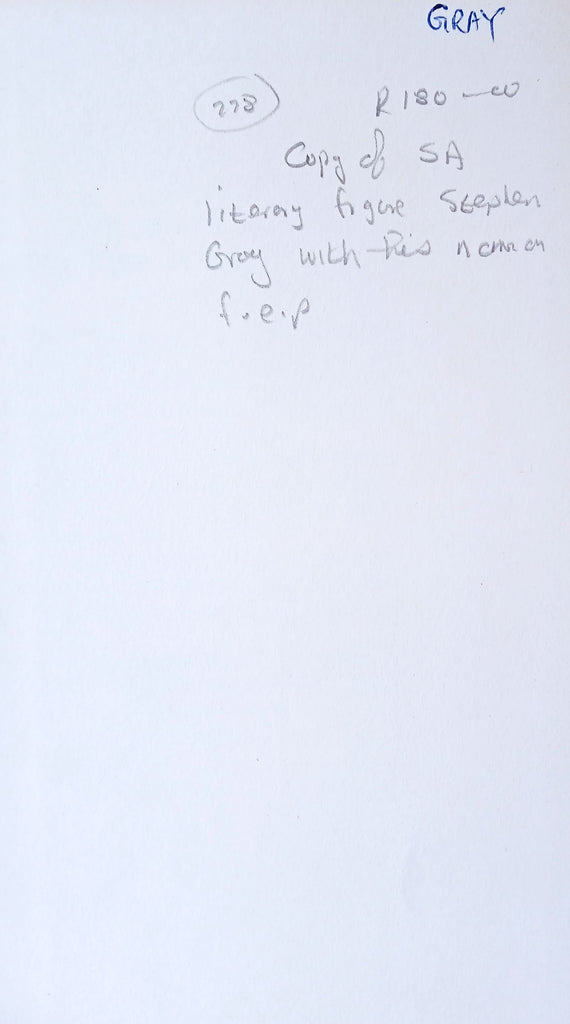 GRAY
228 R180-00
Copy of SA
literary figure Stephen
Gray with his name on
f.e.p